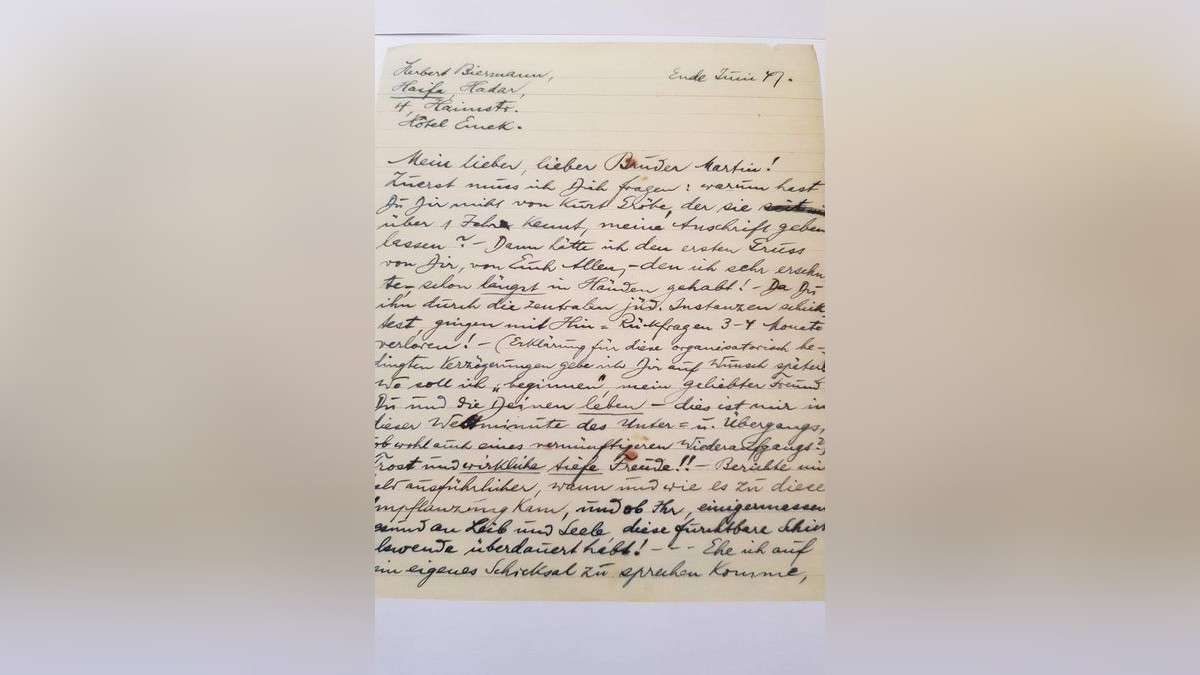 Herbert Biermann,
Haifa, Hadar,
4, Haimstr.
Hôtel Emek.
Ende Juni 47.
Mein lieber, lieber Bruder Martin!
Zuerst muss ich Dich fragen: warum hast
Du Dir nicht von Kurt, der sie
über 1 Jahr kennt, meine Anschrift geben
lassen? - Dann hätte ich den ersten Gruss
von Dir, von Euch Allen, - den ich sehr ersehn
te, - schon längst in Händen gehabt! - Da Du
ihn durch die zentralen jüd. Instanzen schick
test, gingen mit Hin = Rückfragen 3-4 Monate
verloren! - (Erklärung für diese organisatorisch be-
dingten Verzögerungen gebe ich Dir auf Wunsch später
Wo soll ich „beginnen", mein geliebter Freund
Du und die Deinen leben - dies ist mir in
dieser Weltminute des Unter = u. Übergangs,
ob wohl auch eines vernünftigeren Wiederaufgangs?,
Trost und wirkliche tiefe Freude!! - Berichte mir
ausführlicher, wann und wie es zu diese
mpflanzung kam, und ob Ihr, einigermassen
esund an Leib und Seele, diese furchtbare Schick
lswende überdauert habt! - - - Ehe ich auf
ein eigenes Schicksal zu sprechen komme,